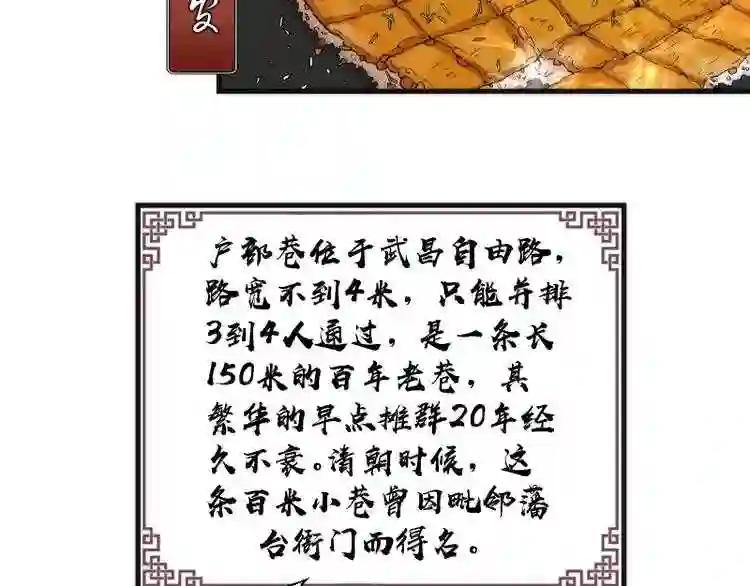 发
户部巷位于武昌自由路，
路宽不到4米，只能并排
3到4人通过，是一条长
150米的百年老巷，其
繁华的早点摊群20年经
久不衰。清朝时候，这
条百米小巷曾因毗邻藩
台衙门而得名。